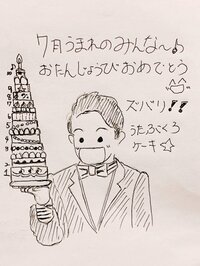 7月うまれのみんな〜♪
おたんじょうびおめでとう
ズバリ!!
うたぶくろ
ケーキ☆
♪
10
9
8
7
6
5
4
3
2
1